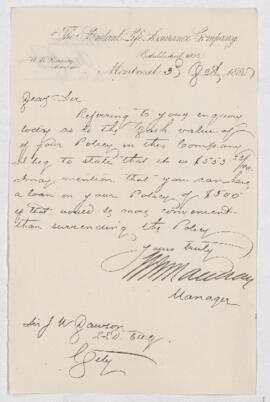 The Standard Life Assurance Company,
Established 1825
W. M. Ramsay
Manager
Montreal 3 1885
Dear Sir
Referring to your enquiry
today as to the Cash value of
of your Policy in this Company
I beg to state that it is $553
I may mention that you can have
a loan on your Policy of $500
if that would be more convenient
than surrending the Policy
Yours truly
W M Ramsay
Manager
Sir J W Dawson
L.L.D. Etc
City